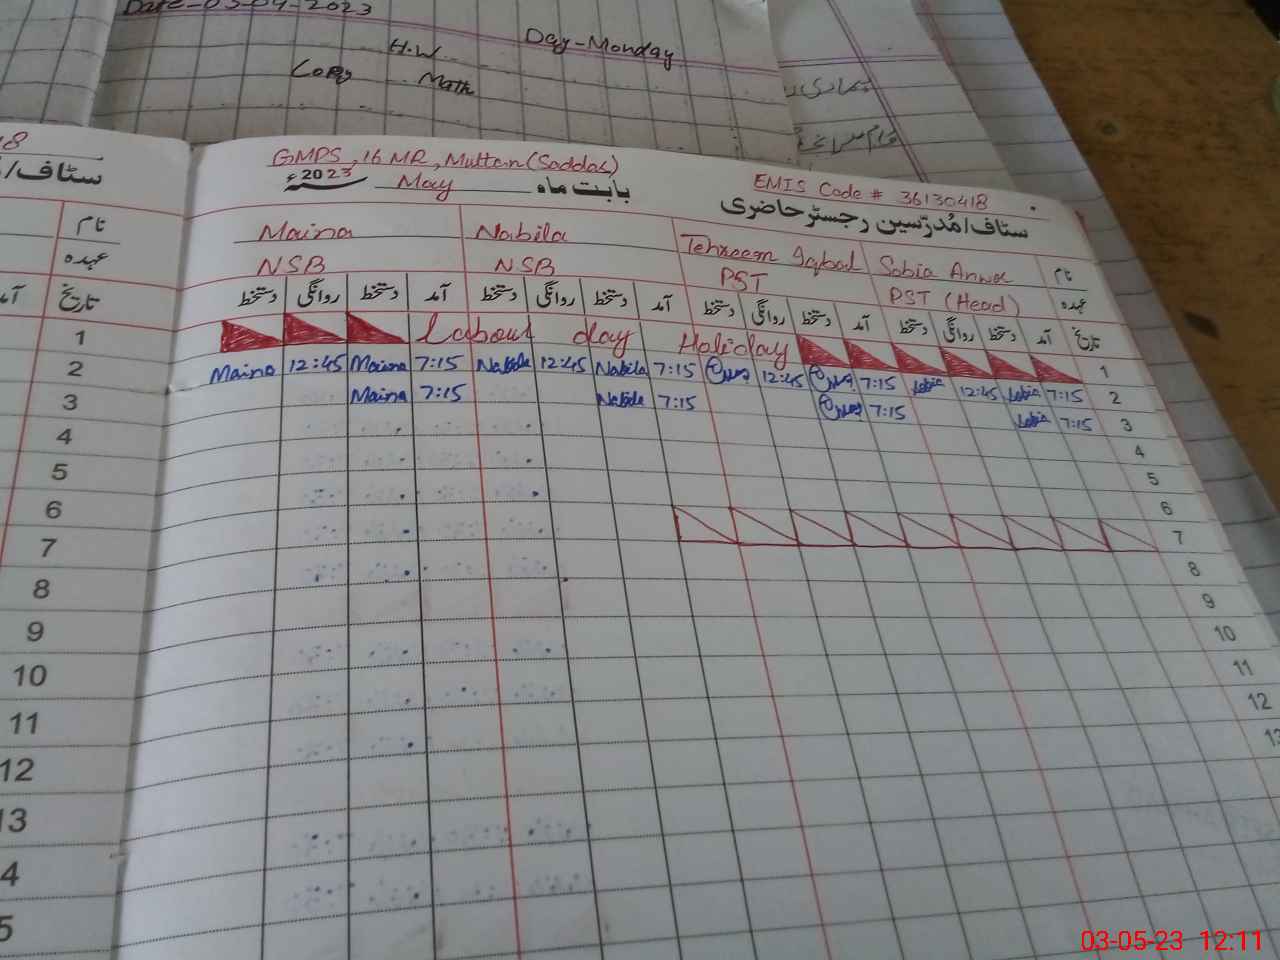 Date-03-04-2023
Day-Monday
H.W
Copy Math
GMPS, 16 MR, Multan (Saddar)
EMIS Code # 36130418
سٹاف/مُدرّسین رجسٹر حاضری
بابت ماہ May 2023ء
سٹاف/
نام Sobia Anwar Tehreem Iqbal Nabila Maina نام
عہدہ PST (Head) PST NSB NSB عہدہ
تاریخ آمد دستخط روانگی دستخط آمد دستخط روانگی دستخط آمد دستخط روانگی دستخط آمد دستخط روانگی دستخط تاریخ
1 Labour day Holiday 1
2 Maina 12:45 Maina 7:15 Nabila 12:45 Nabila 7:15 12:45 7:15 Sobia 12:45 Sobia 7:15 2
3 Maina 7:15 Nabila 7:15 7:15 Sobia 7:15 3
4 4
5 5
6 6
7 7
8 8
9 9
10 10
11 11
12 12
13 13
4
5
03-05-23 12:11